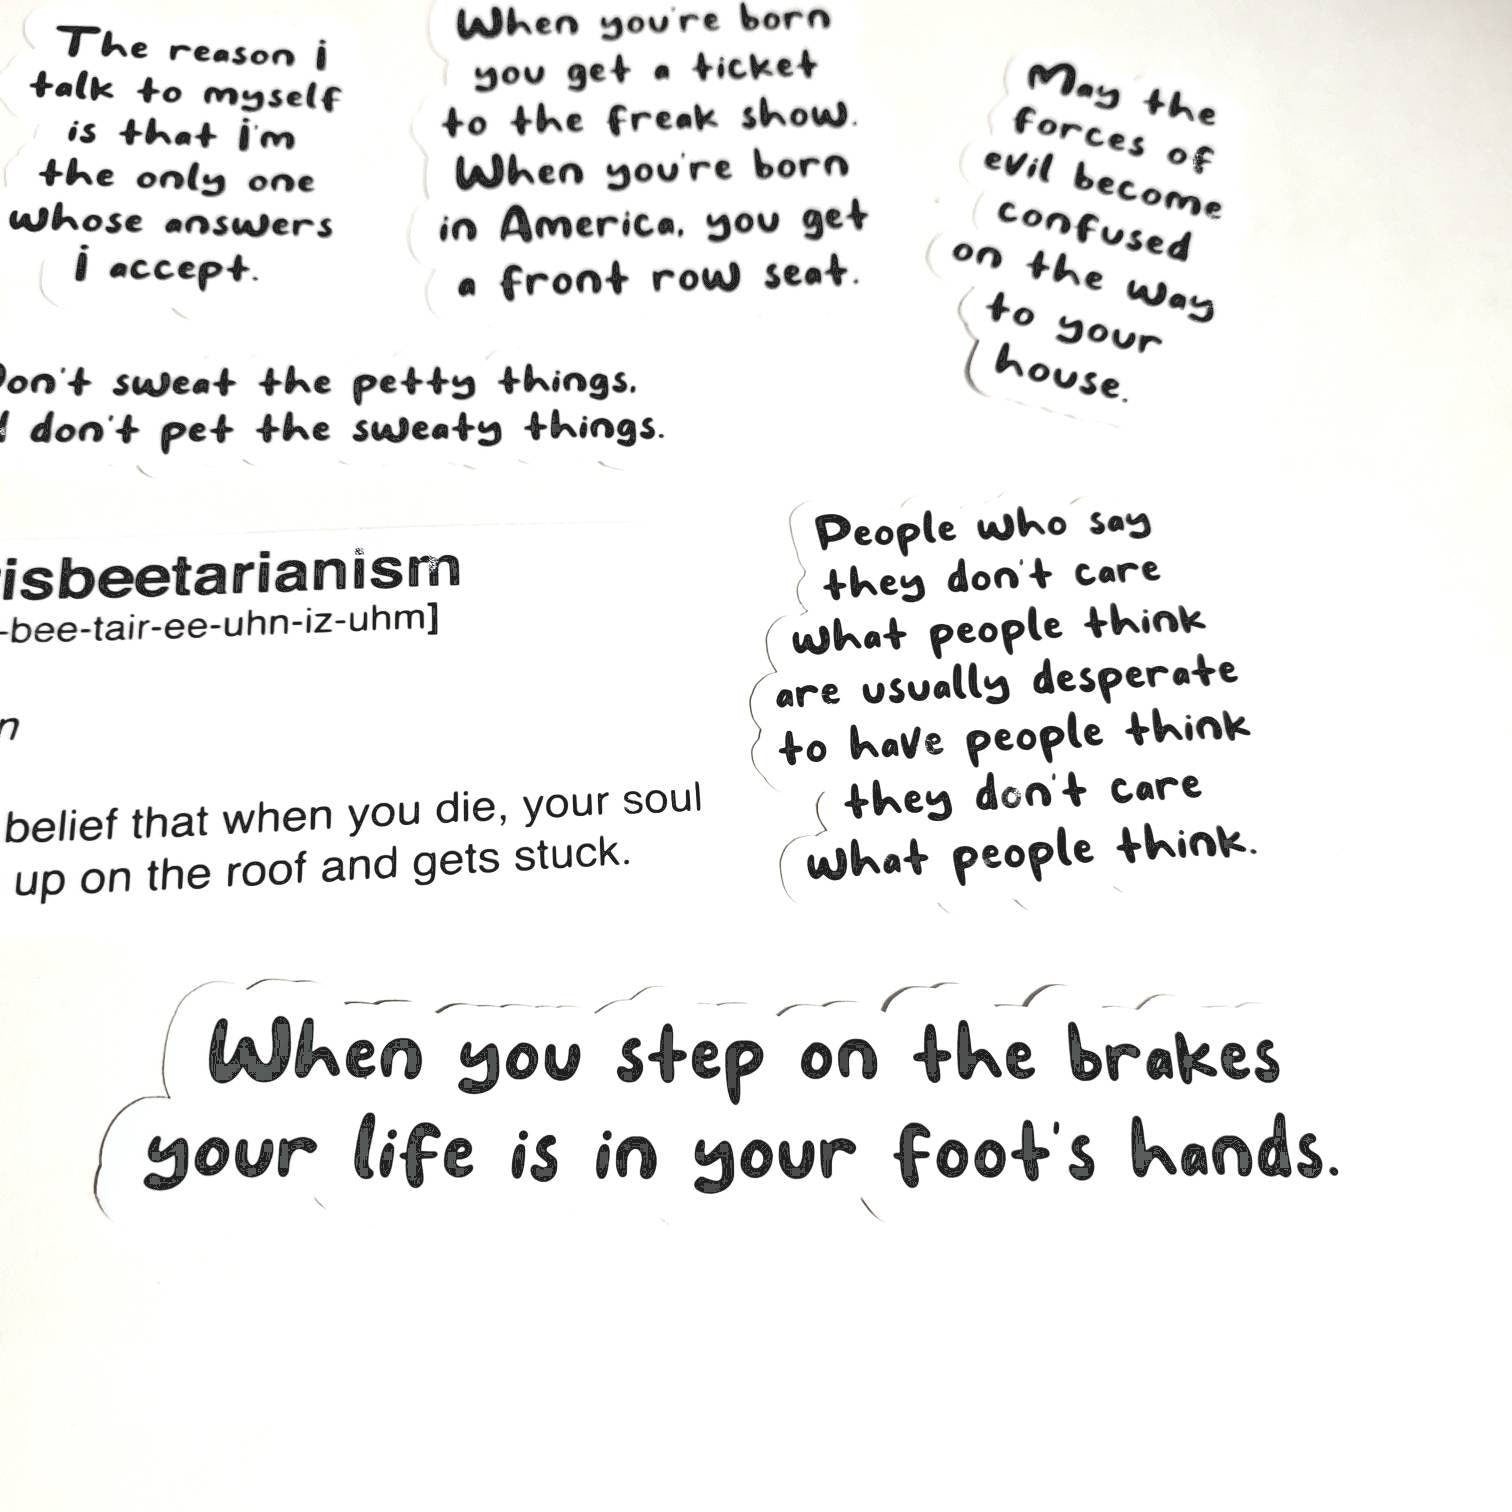 The reason i
talk to myself
is that i'm
the only one
whose answers
i accept.
When you're born
you get a ticket
to the freak show.
When you're born
in America, you get
a front row seat.
May the
forces of
evil become
confused
on the way
to your
house.
Don't sweat the petty things.
don't pet the sweaty things.
isbeetarianism
-bee-tair-ee-uhn-iz-uhm]
n
belief that when you die, your soul
up on the roof and gets stuck.
People who say
they don't care
what people think
are usually desperate
to have people think
they don't care
what people think.
When you step on the brakes
your life is in your foot's hands.